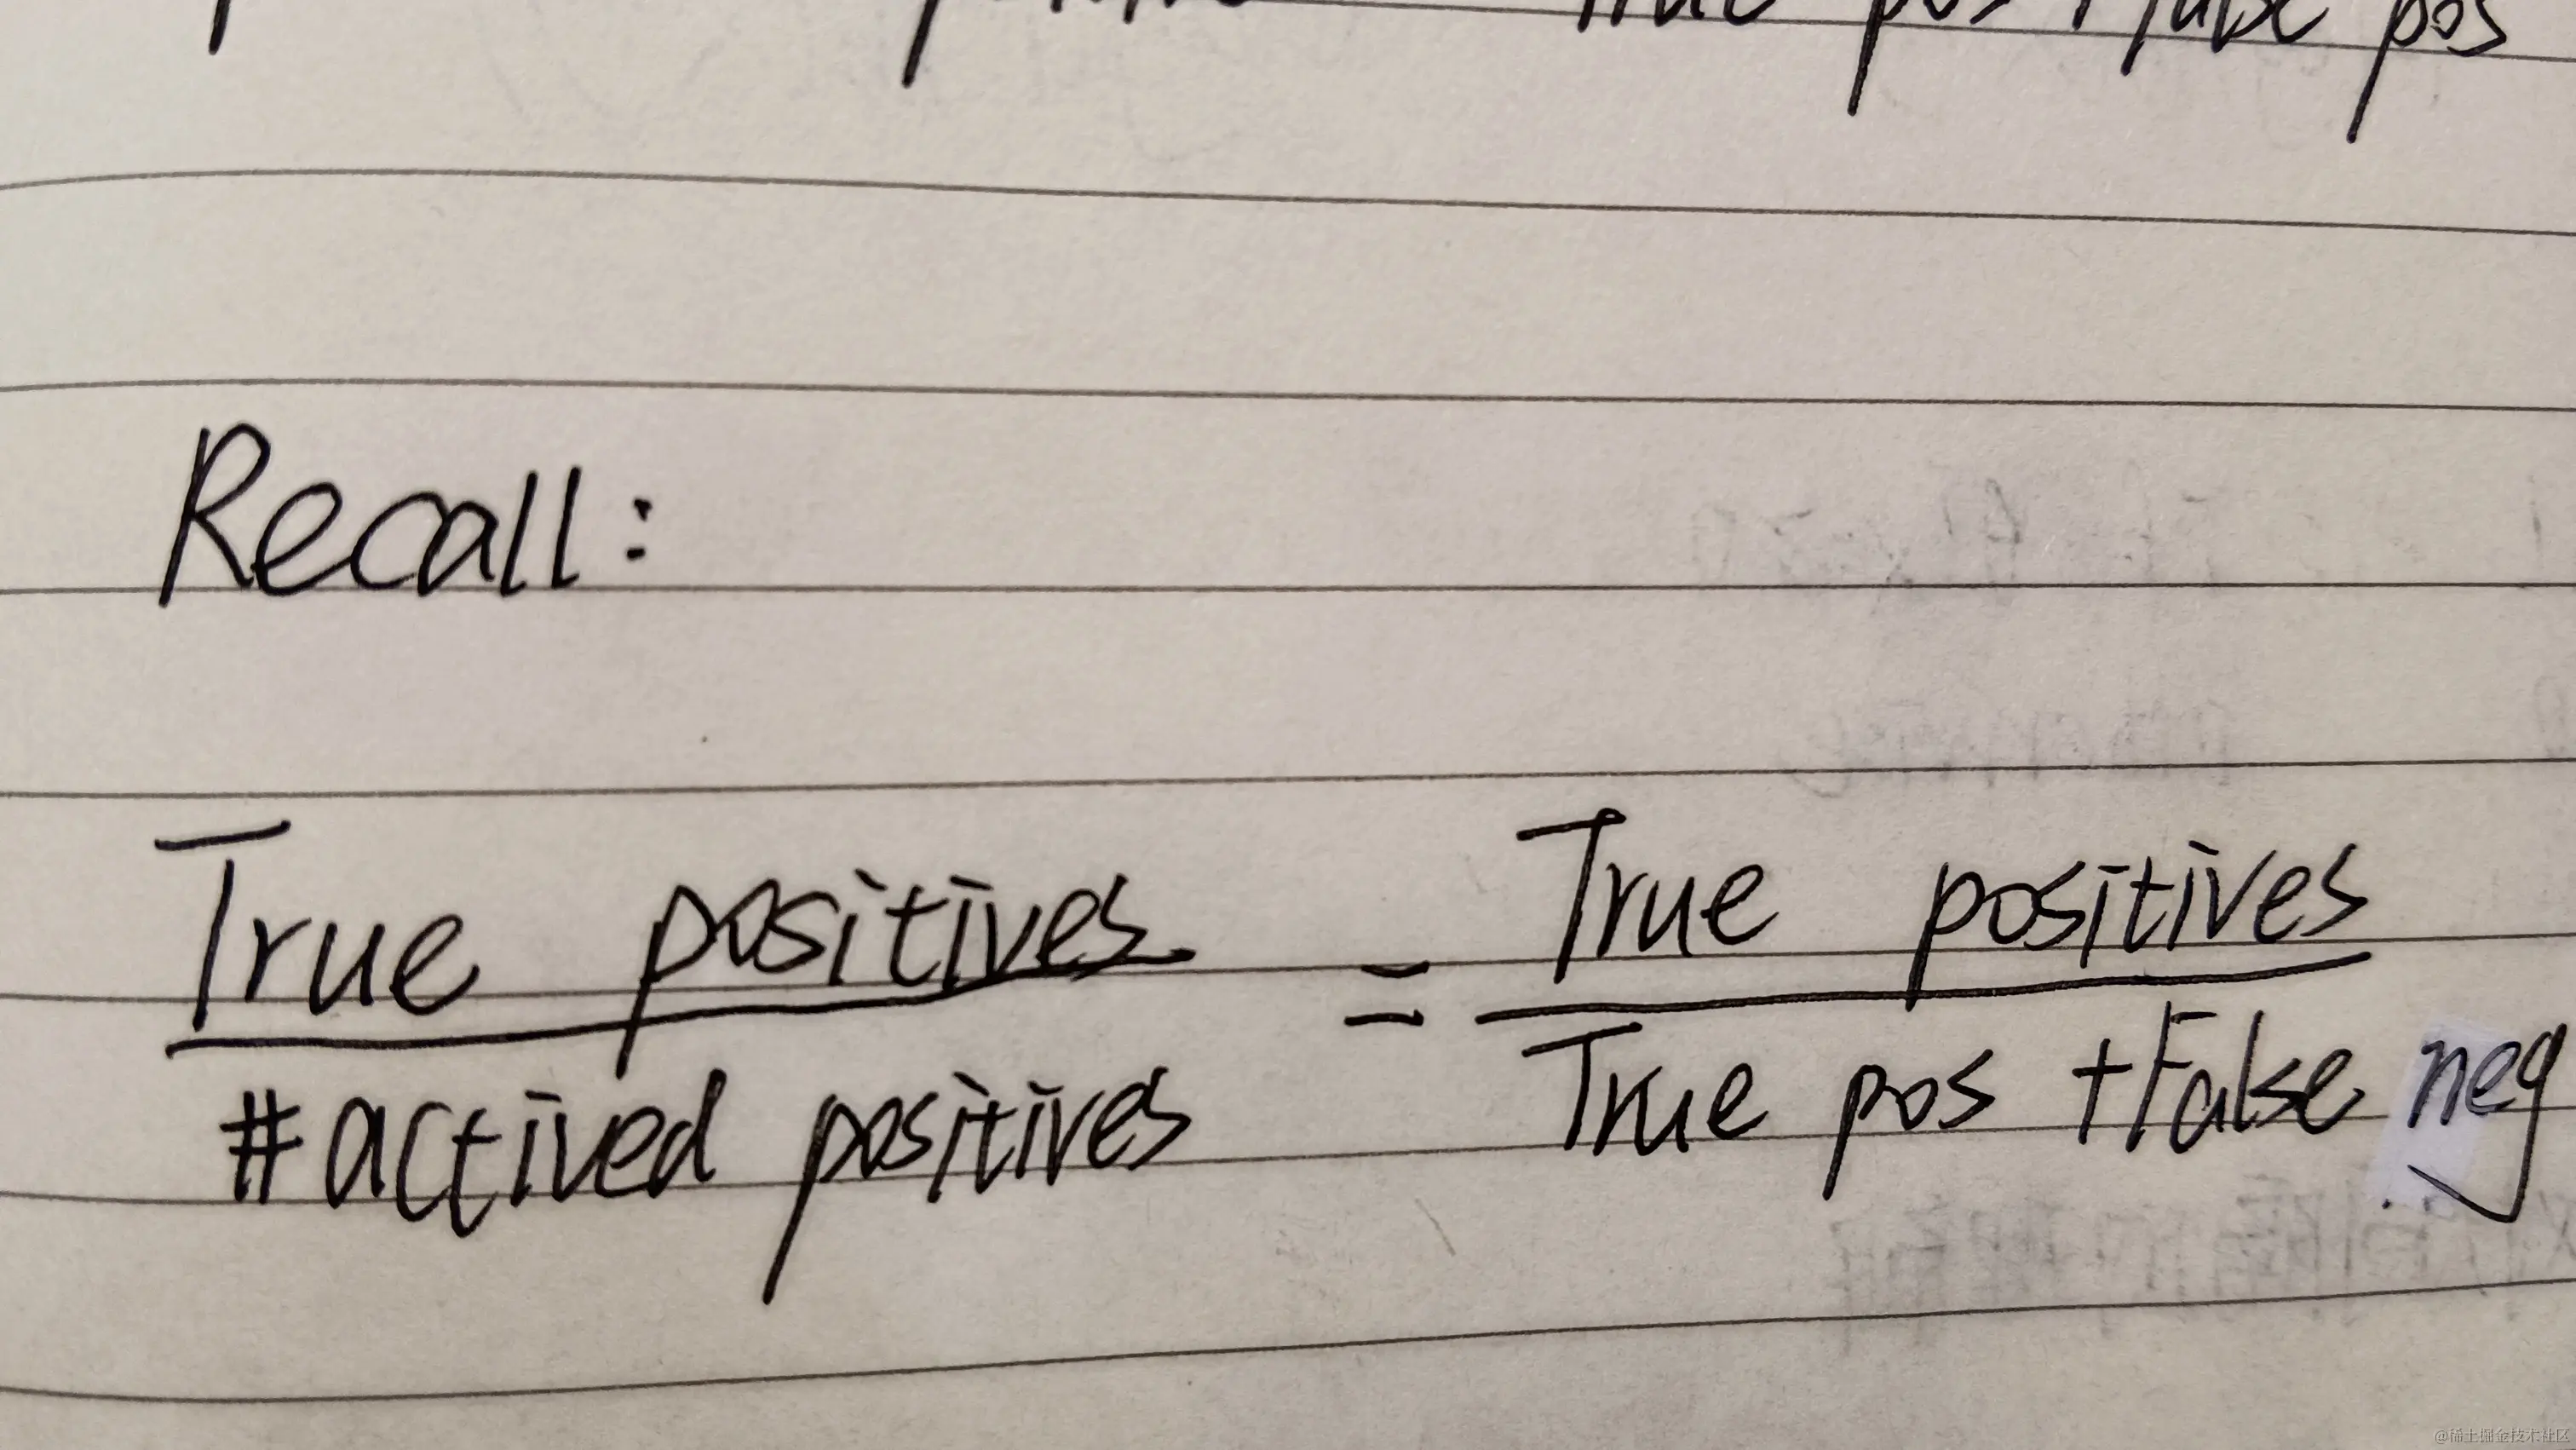 True pos + false pos
Recall:
True positives = True positives
#actived positives True pos + False neg
@稀土掘金技术社区